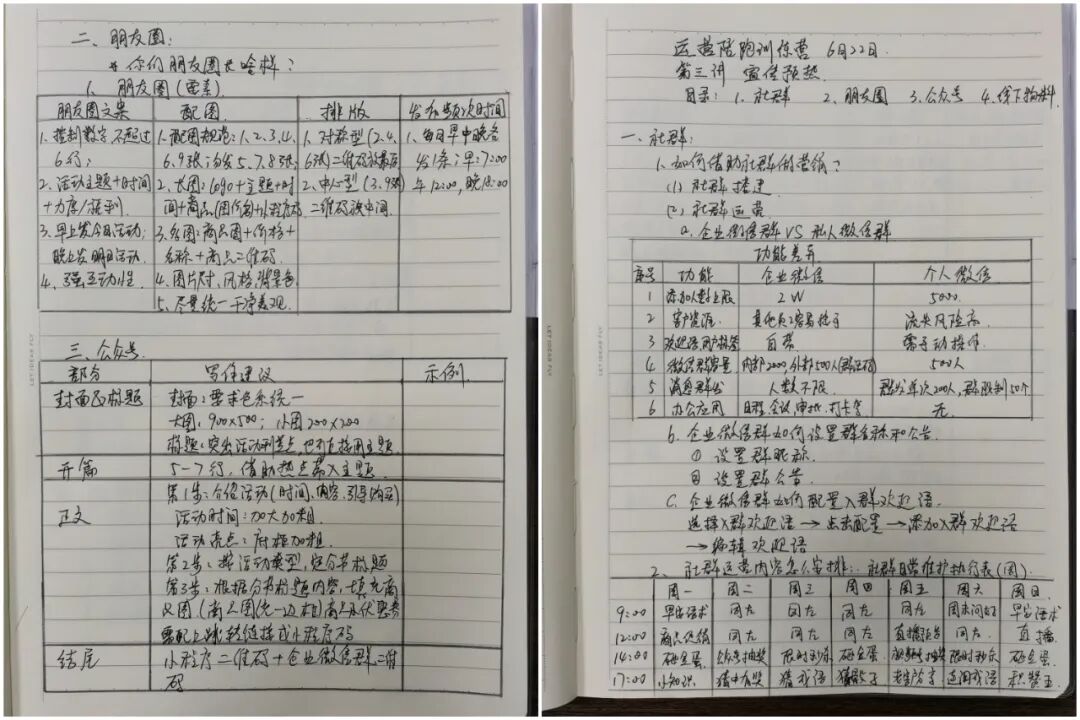 二、朋友圈：
* 你们朋友圈长啥样？
1. 朋友圈（要素）
朋友圈文案 配图 排版 发布频次时间
1、控制数字，不超过 1、配图规范：1、2、3、4、 1、对称型（2、4、 1、每日早中晚各
6行； 6、9张；勿发5、7、8张； 6张）二维码放最后 发1条；早：7:00
2、活动主题+时间 2、长图：logo+主题+时 2、中心型（3、9张） 午12:00，晚18:00
+力度/福利. 间+商品(图价名)+小程序码 二维码放中间.
3、早上发今日活动； 3、多图：商品图+价格+
晚上发明日活动. 名称+商品二维码.
4、强互动性. 4、图片尺寸、风格、背景色
5、尽量统一干净美观.
三、公众号.
部分 写作建议 示例.
封面及标题 封面：要求色系统一
大图：900×500；小图200×200
标题：突出活动利益点，
开篇 5-7行，借助热点带入主题.
第1步：介绍活动(时间、内容、引导购买)
正文 活动时间：加大加粗.
活动亮点：对框加粗.
第2步：按活动类型，定分节标题
第3步：根据分节标题内容，填充商
品图(商品图统一边框)商品及优惠券
需配上跳转链接或小程序码
结尾 小程序二维码+企业微信群二维
码
运营陪跑训练营 6月22日.
第三讲 宣传预热.
目录：1. 社群 2. 朋友圈 3. 公众号 4. 线下物料
一、社群：
1. 如何借助社群做营销？
(1) 社群搭建
(2) 社群运营
a. 企业微信群 VS 私人微信群
功能差异
序号 功能 企业微信 个人微信
1 添加人数上限 2W 5000.
2 客户资源 流失风险高.
3 欢迎语 自带 需手动操作.
4 微信群容量 内部2000，外部500人 500人
5 消息群发 人数不限. 群发单次200人，群限制50个
6 办公应用 日程、会议、审批、打卡等 无.
b. 企业微信群如何设置群名称和公告.
① 设置群昵称.
② 设置群公告.
C. 企业微信群如何配置入群欢迎语.
选择入群欢迎语→点击配置→添加入群欢迎语
→编辑欢迎语
2、社群运营内容怎么安排：社群日常维护执行表(周).
周一 周二 周三 周四 周五 周六 周日.
9:00 早安话术 同左 同左 同左 同左 周末问好 早安话术
12:00 商品促销 同左 同左 同左 直播预告 同左. 直播.
14:00 砸金蛋. 公众号抽奖 限时秒杀 砸金蛋. 抽奖 限时秒杀 砸金蛋.
17:00 小知识 猜中有奖 猜成语 看图猜字 成语 积赞王.
LET IDEAS FLY
LET IDEAS FLY